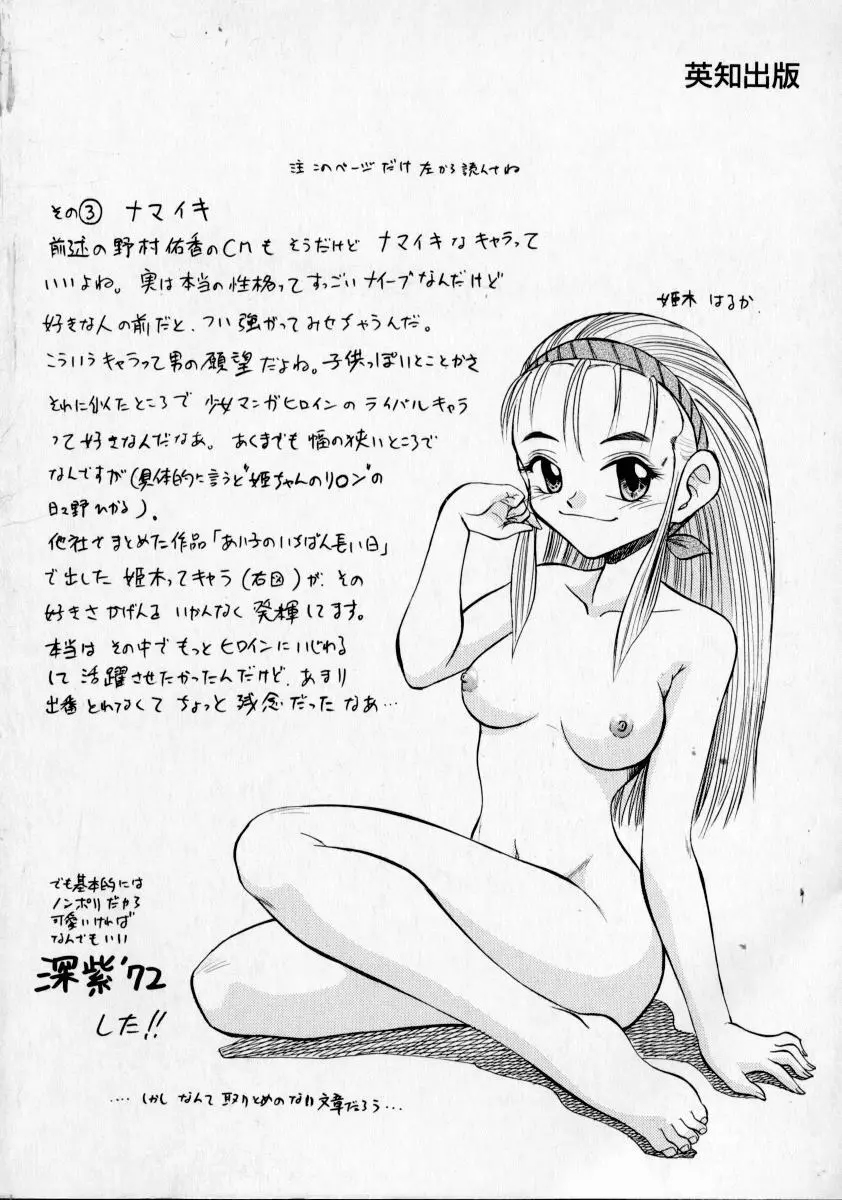 英知出版
注 このページだけ 左から読んでね
その③ ナマイキ
前述の野村佑香のCMも そうだけど ナマイキなキャラって
いいよね。実は本当の性格ってすっごいナイーブなんだけど
好きな人の前だと、つい強がってみせちゃうんだ。
こういうキャラって男の願望だよね。子供っぽいとことかさ
それに似たところで 少女マンガヒロインのライバルキャラ
って好きなんだなあ。あくまでも幅の狭いところで
なんですが(具体的に言うど"姫ちゃんのリ○ン"の
日々野ひかる)。
姫木 はるか
他社でまとめた作品「あい子のいちばん長い日」
で出した 姫木ってキャラ(右図)が、その
好きさかげんを いかんなく 発揮してます。
本当は その中で もっと ヒロインに いじわる
して 活躍させたかったんだけど、あまり
出番 とれなくて ちょっと 残念だったなあ…
でも基本的には
ノンポリだから
可愛いければ
なんでもいい
深紫'72
した!!
‥‥ しかし なんて 取りとめのない文章だろう…